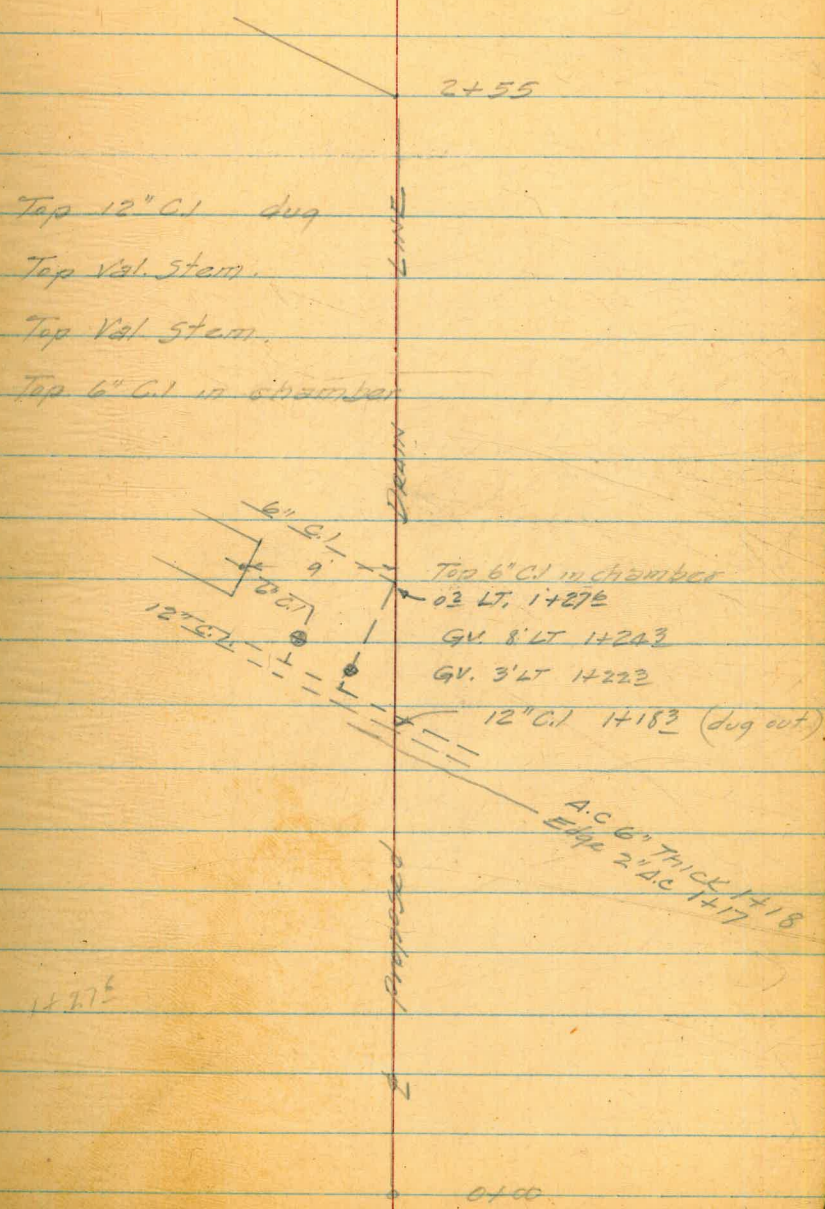 2+55
Top 12" C.I dug
Top Val. Stem.
Top Val Stem.
Top 6" C.I in chamber
℄ Proposed DRAIN LINE
6" C.I.
6"
2" C.I
12" C.I.
Top 6" C.I in chamber
0³ LT. 1+27⁶
GV. 8' LT 1+24³
GV. 3' LT 1+22³
12" C.I 1+18³ (dug out)
A.C 6" THICK 1+18
Edge 2" A.C 1+17
1+27⁶
0+00